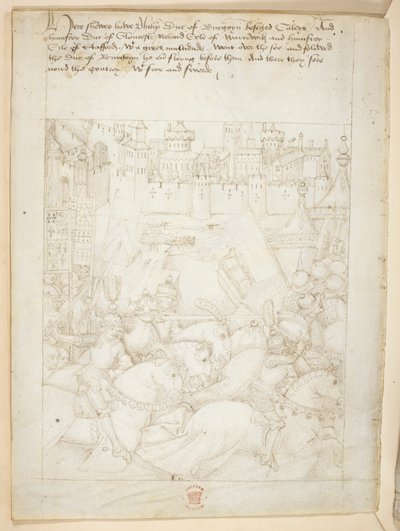 Here shewes howe Philip Duc of Burgoyn beseged Caleys And
humfrey Duc of Gloucestr Richard Erle of Warrewik and humfrey
Erle of Stafford w a greet multitude Went over the see and folowed
the Duc of Burgoyn he ever fleyng before them And there they sore
noyed the Contrey w fire and swerde
BRITISH
MUSEUM